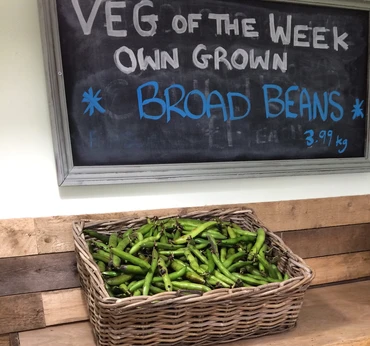 VEG OF THE WEEK
OWN GROWN
* BROAD BEANS *
3.99 kg